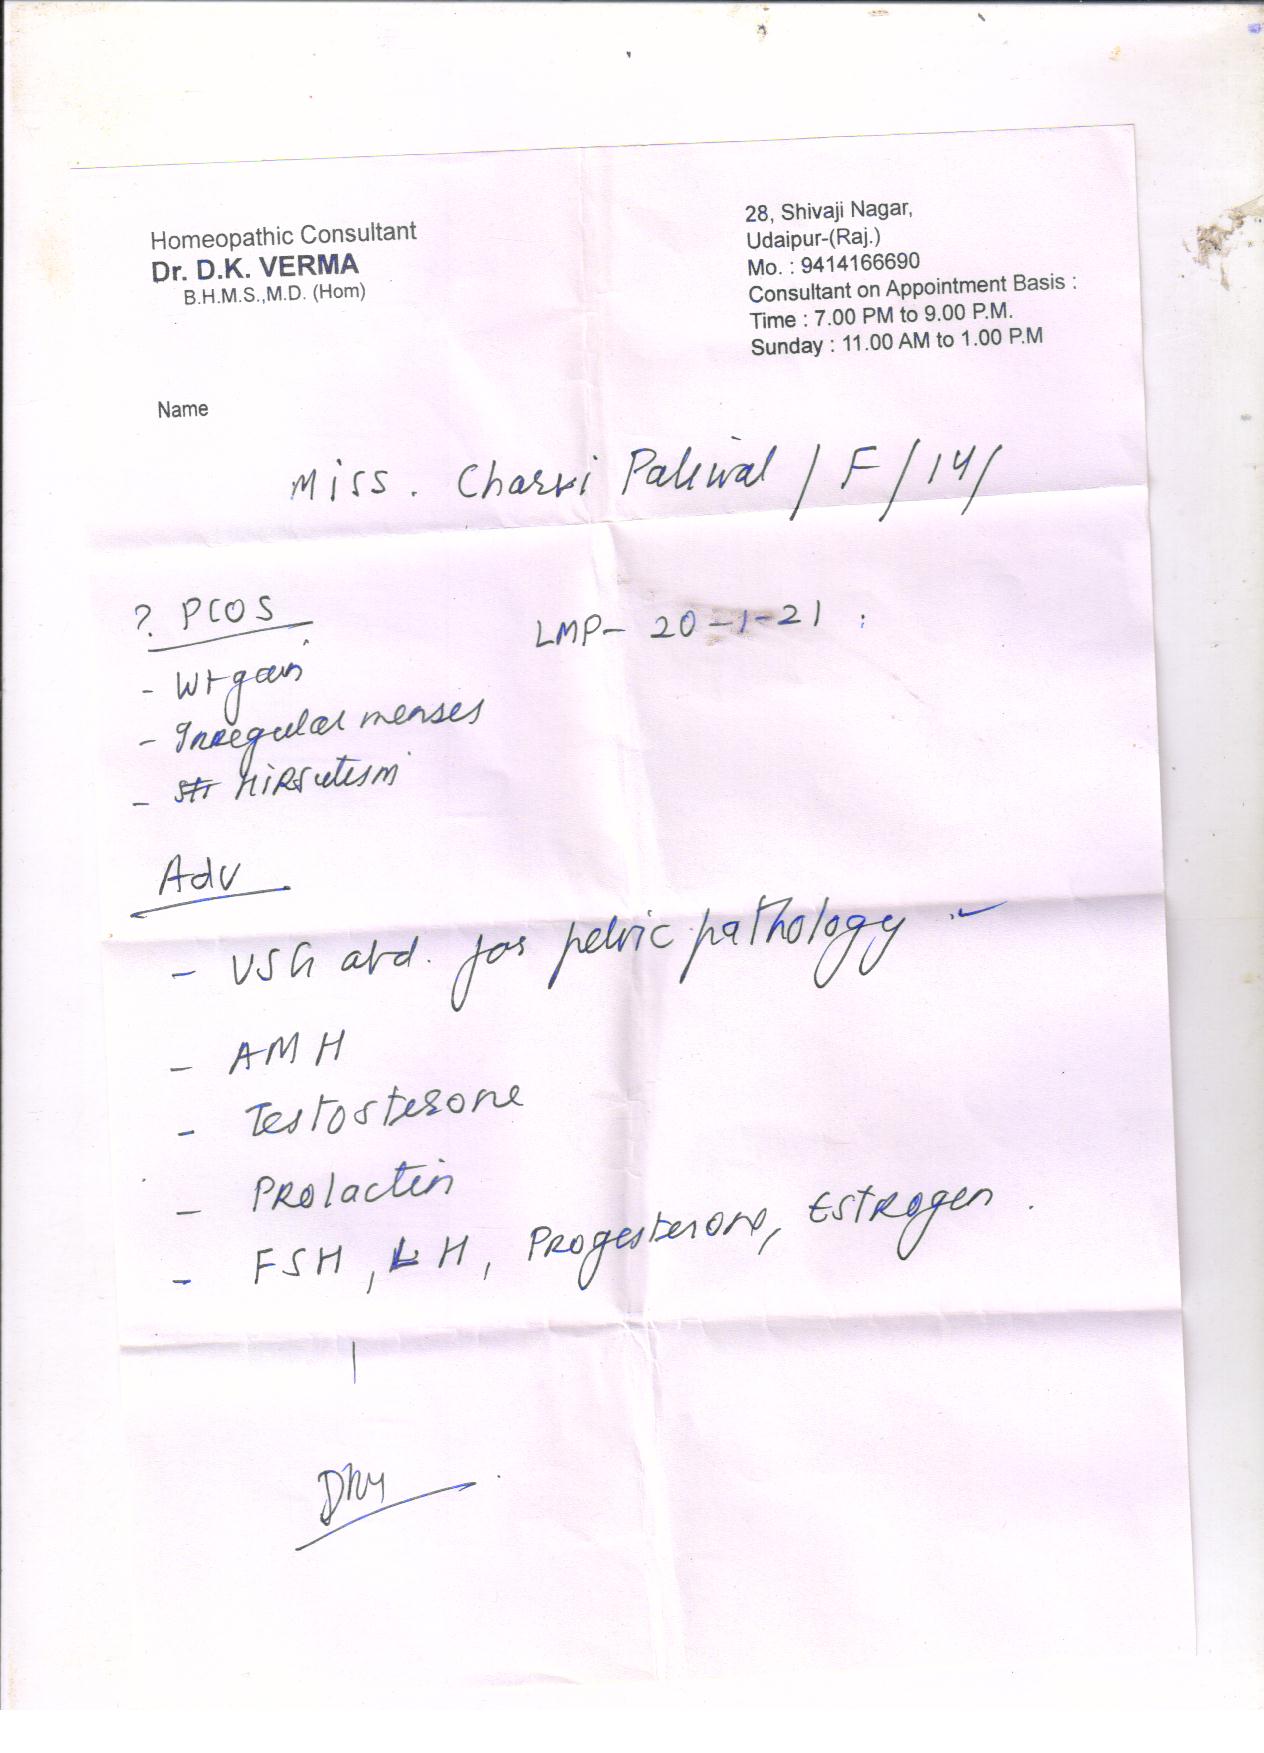 Homeopathic Consultant
Dr. D.K. VERMA
B.H.M.S.,M.D. (Hom)
28, Shivaji Nagar,
Udaipur-(Raj.)
Mo. : 9414166690
Consultant on Appointment Basis :
Time : 7.00 PM to 9.00 P.M.
Sunday : 11.00 AM to 1.00 P.M
Name
Miss. Charvi Paliwal / F / 14 /
? PCOS
LMP- 20-1-21 :
- Wt gain
- Irregular menses
- Hirsutism
Adv
- USG abd. for pelvic pathology
- AMH
- Testosterone
- Prolactin
- FSH, LH, Progesterone, Estrogen.